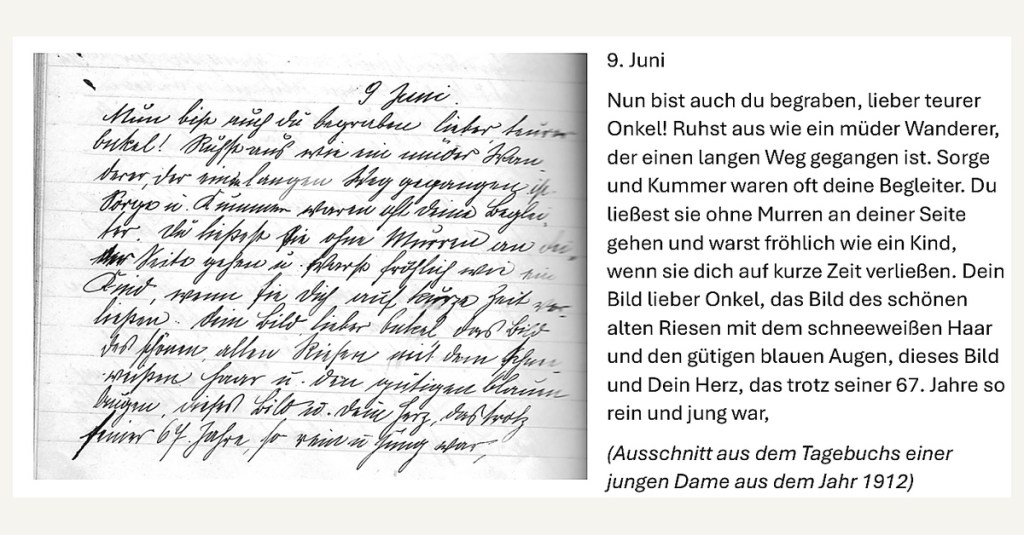 9 Juni.
Nun bist auch du begraben lieber teurer
Onkel! Ruhst aus wie ein müder Wan
derer, der einen langen Weg gegangen ist.
Sorge u. Kummer waren oft deine Beglei
ter. Du ließest sie ohne Murren an dei-
ner Seite gehen u. warst fröhlich wie ein
Kind, wenn sie dich auf kurze Zeit ver-
ließen. Dein Bild lieber Onkel, das Bild
des schönen alten Riesen mit dem schnee
weißen Haar u. den gütigen blauen
Augen, dieses Bild u. dein Herz, das trotz
seiner 67. Jahre, so rein u jung war,
9. Juni
Nun bist auch du begraben, lieber teurer
Onkel! Ruhst aus wie ein müder Wanderer,
der einen langen Weg gegangen ist. Sorge
und Kummer waren oft deine Begleiter. Du
ließest sie ohne Murren an deiner Seite
gehen und warst fröhlich wie ein Kind,
wenn sie dich auf kurze Zeit verließen. Dein
Bild lieber Onkel, das Bild des schönen
alten Riesen mit dem schneeweißen Haar
und den gütigen blauen Augen, dieses Bild
und Dein Herz, das trotz seiner 67. Jahre so
rein und jung war,
(Ausschnitt aus dem Tagebuchs einer
jungen Dame aus dem Jahr 1912)